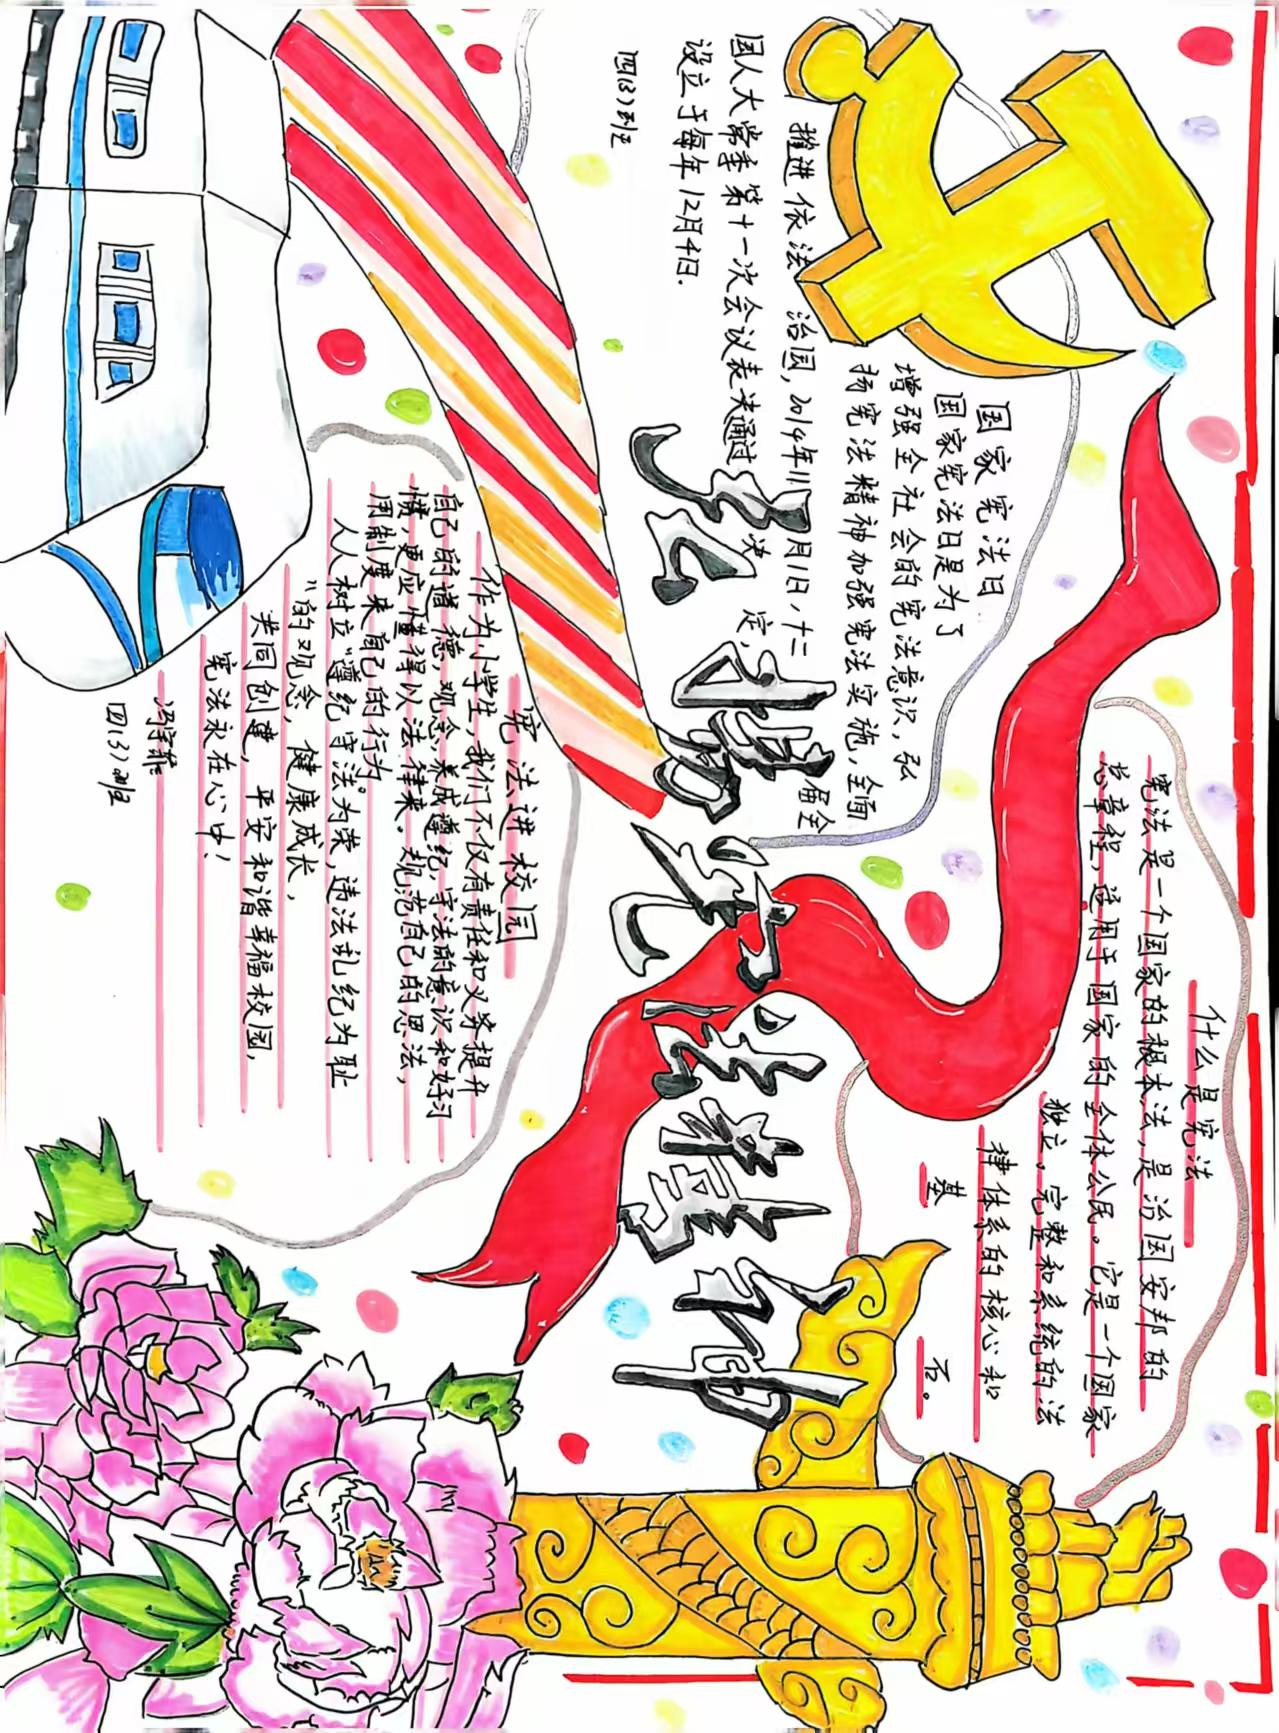 国家宪法日
国家宪法日是为了
增强全社会的宪法意识,弘
扬宪法精神加强宪法实施,全面
推进依法治国,2014年11月1日,十二届全
国人大常委第十一次会议表决通过决定,
设立于每年12月4日.
四(3)班
什么是宪法
宪法是一个国家的根本法,是治国安邦的
总章程,适用于国家的全体公民。它是一个国家
独立、完整和系统的法
律体系的核心和
基石。
弘扬宪法精神
宪法进校园
作为小学生,我们不仅有责任和义务提升
自己的道德,观念,养成遵纪,守法的意识和好习
惯,更应懂得以法律来.规范自己的思法,
用制度来自己的行为。
人人树立“遵纪守法。为荣,违法乱纪为耻
”的观念,健康成长,
共同创建,平安和谐幸福校园,
宪法永在心中!
四(3)班